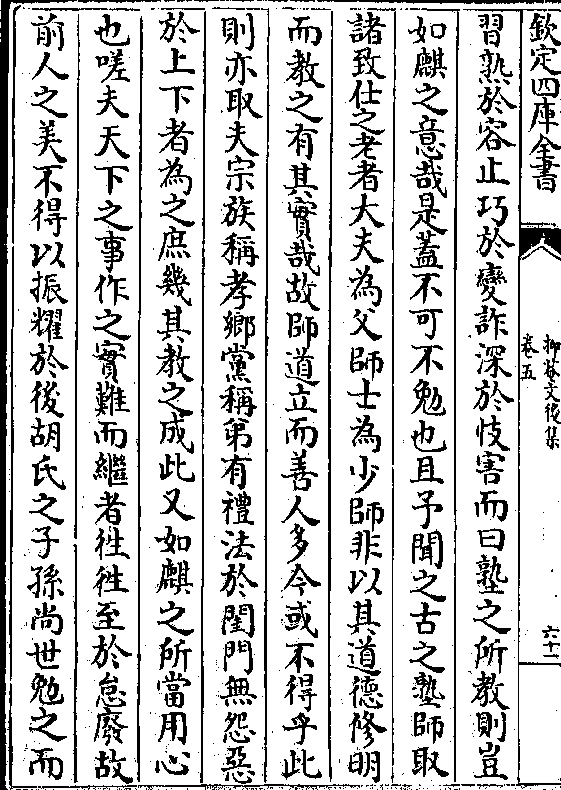 欽定四庫全書
抑菴文後集
卷五
六十一
習熟於容止巧於變詐深於忮害而曰塾之所教則豈
如麒之意哉是蓋不可不勉也且予聞之古之塾師取
諸致仕之老者大夫為父師士為少師非以其道德修明
而教之有其實哉故師道立而善人多今或不得乎此
則亦取夫宗族稱孝鄉黨稱弟有禮法於閨門無怨惡
於上下者為之庶幾其教之成此又如麒之所當用心
也嗟夫天下之事作之實難而繼者徃徃至於怠廢故
前人之美不得以振耀於後胡氏之子孫尚世勉之而